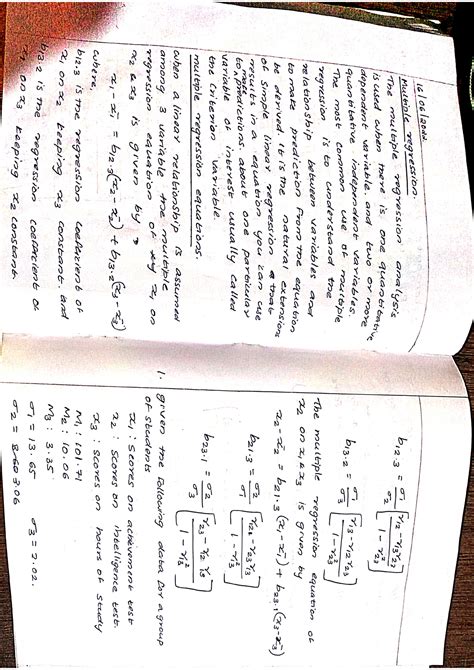 16/06/2024
Multiple regression
The multiple regression analysis
is used when there is one quantitative
dependent variable and two or more
quantitative independent variables.
The most common use of multiple
regression is to understand the
relationship between variables and
to make prediction from the equation
be derived. It is the natural extension
of simple linear regression & that
results in a equation you can use
to make predictions about one particular
variable of interest usually called
the criterion variable.
multiple regression equations.
when a linear relationship is assumed
among 3 variable the multiple
regression equation of x₁ on
x₂ & x₃ is given by
x₁ - x̄₁ = b₁₂.₃(x₂ - x̄₂) + b₁₃.₂(x₃ - x̄₃)
where,
b₁₂.₃ is the regression coefficient of
x₁ on x₂ keeping x₃ constant. and
b₁₃.₂ is the regression coefficient of
x₁ on x₃ keeping x₂ constant
b₁₂.₃ = σ₁/σ₂ [r₁₂ - r₁₃ r₂₃ / 1 - r₂₃²]
b₁₃.₂ = σ₁/σ₃ [r₁₃ - r₁₂ r₂₃ / 1 - r₂₃²]
The multiple regression equation of
x₂ on x₁ & x₃ is given by
x₂ - x̄₂ = b₂₁.₃ (x₁ - x̄₁) + b₂₃.₁ (x₃ - x̄₃)
b₂₁.₃ = σ₂/σ₁ [r₁₂ - r₂₃ r₁₃ / 1 - r₁₃²]
b₂₃.₁ = σ₂/σ₃ [r₂₃ - r₁₂ r₁₃ / 1 - r₁₃²]
1. given the following data for a group
of students
x₁ : scores on achievement test
x₂ : scores on intelligence test.
x₃ : scores on hours of study
M₁ : 101.71
M₂ : 10.06
M₃ : 3.35
σ₁ = 13.65 σ₃ = 2.02.
σ₂ = 3.06